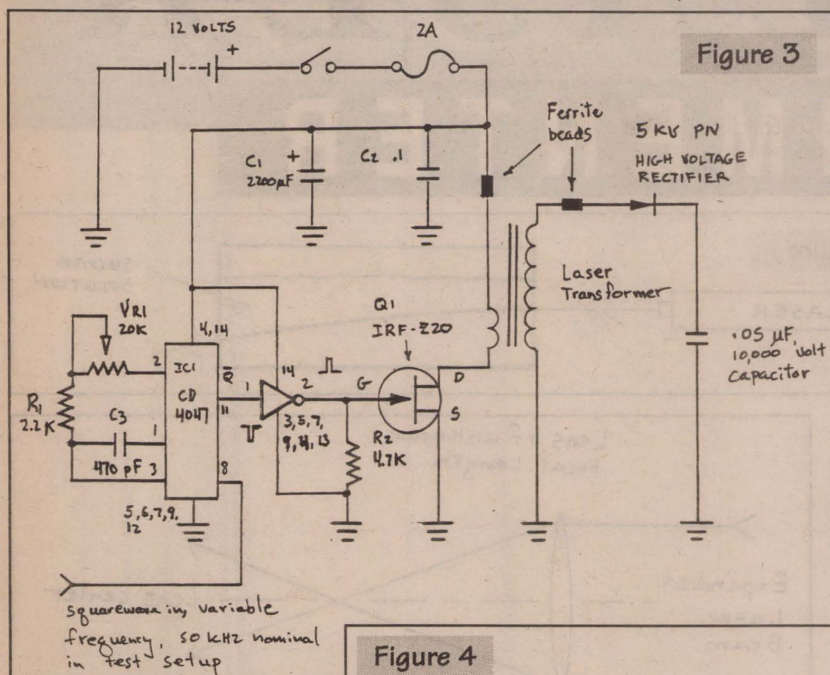 12 VOLTS
+
2A
Figure 3
Ferrite
beads
5 KV PN
HIGH VOLTAGE
RECTIFIER
C1
+
2200µF
C2 .1
Laser
Transformer
.05 µF,
10,000 volt
Capacitor
VR1
20K
4,14
Q1
IRF-Z20
2
IC1
CD
4047
Q̅
11
1
14
2
3,5,7,
9,11,13
G
D
S
R1
2.2K
C3
470 pF
1
3
8
R2
4.7K
5,6,7,9,
12
squarewave in, variable
frequency, 50 kHz nominal
in test setup
Figure 4